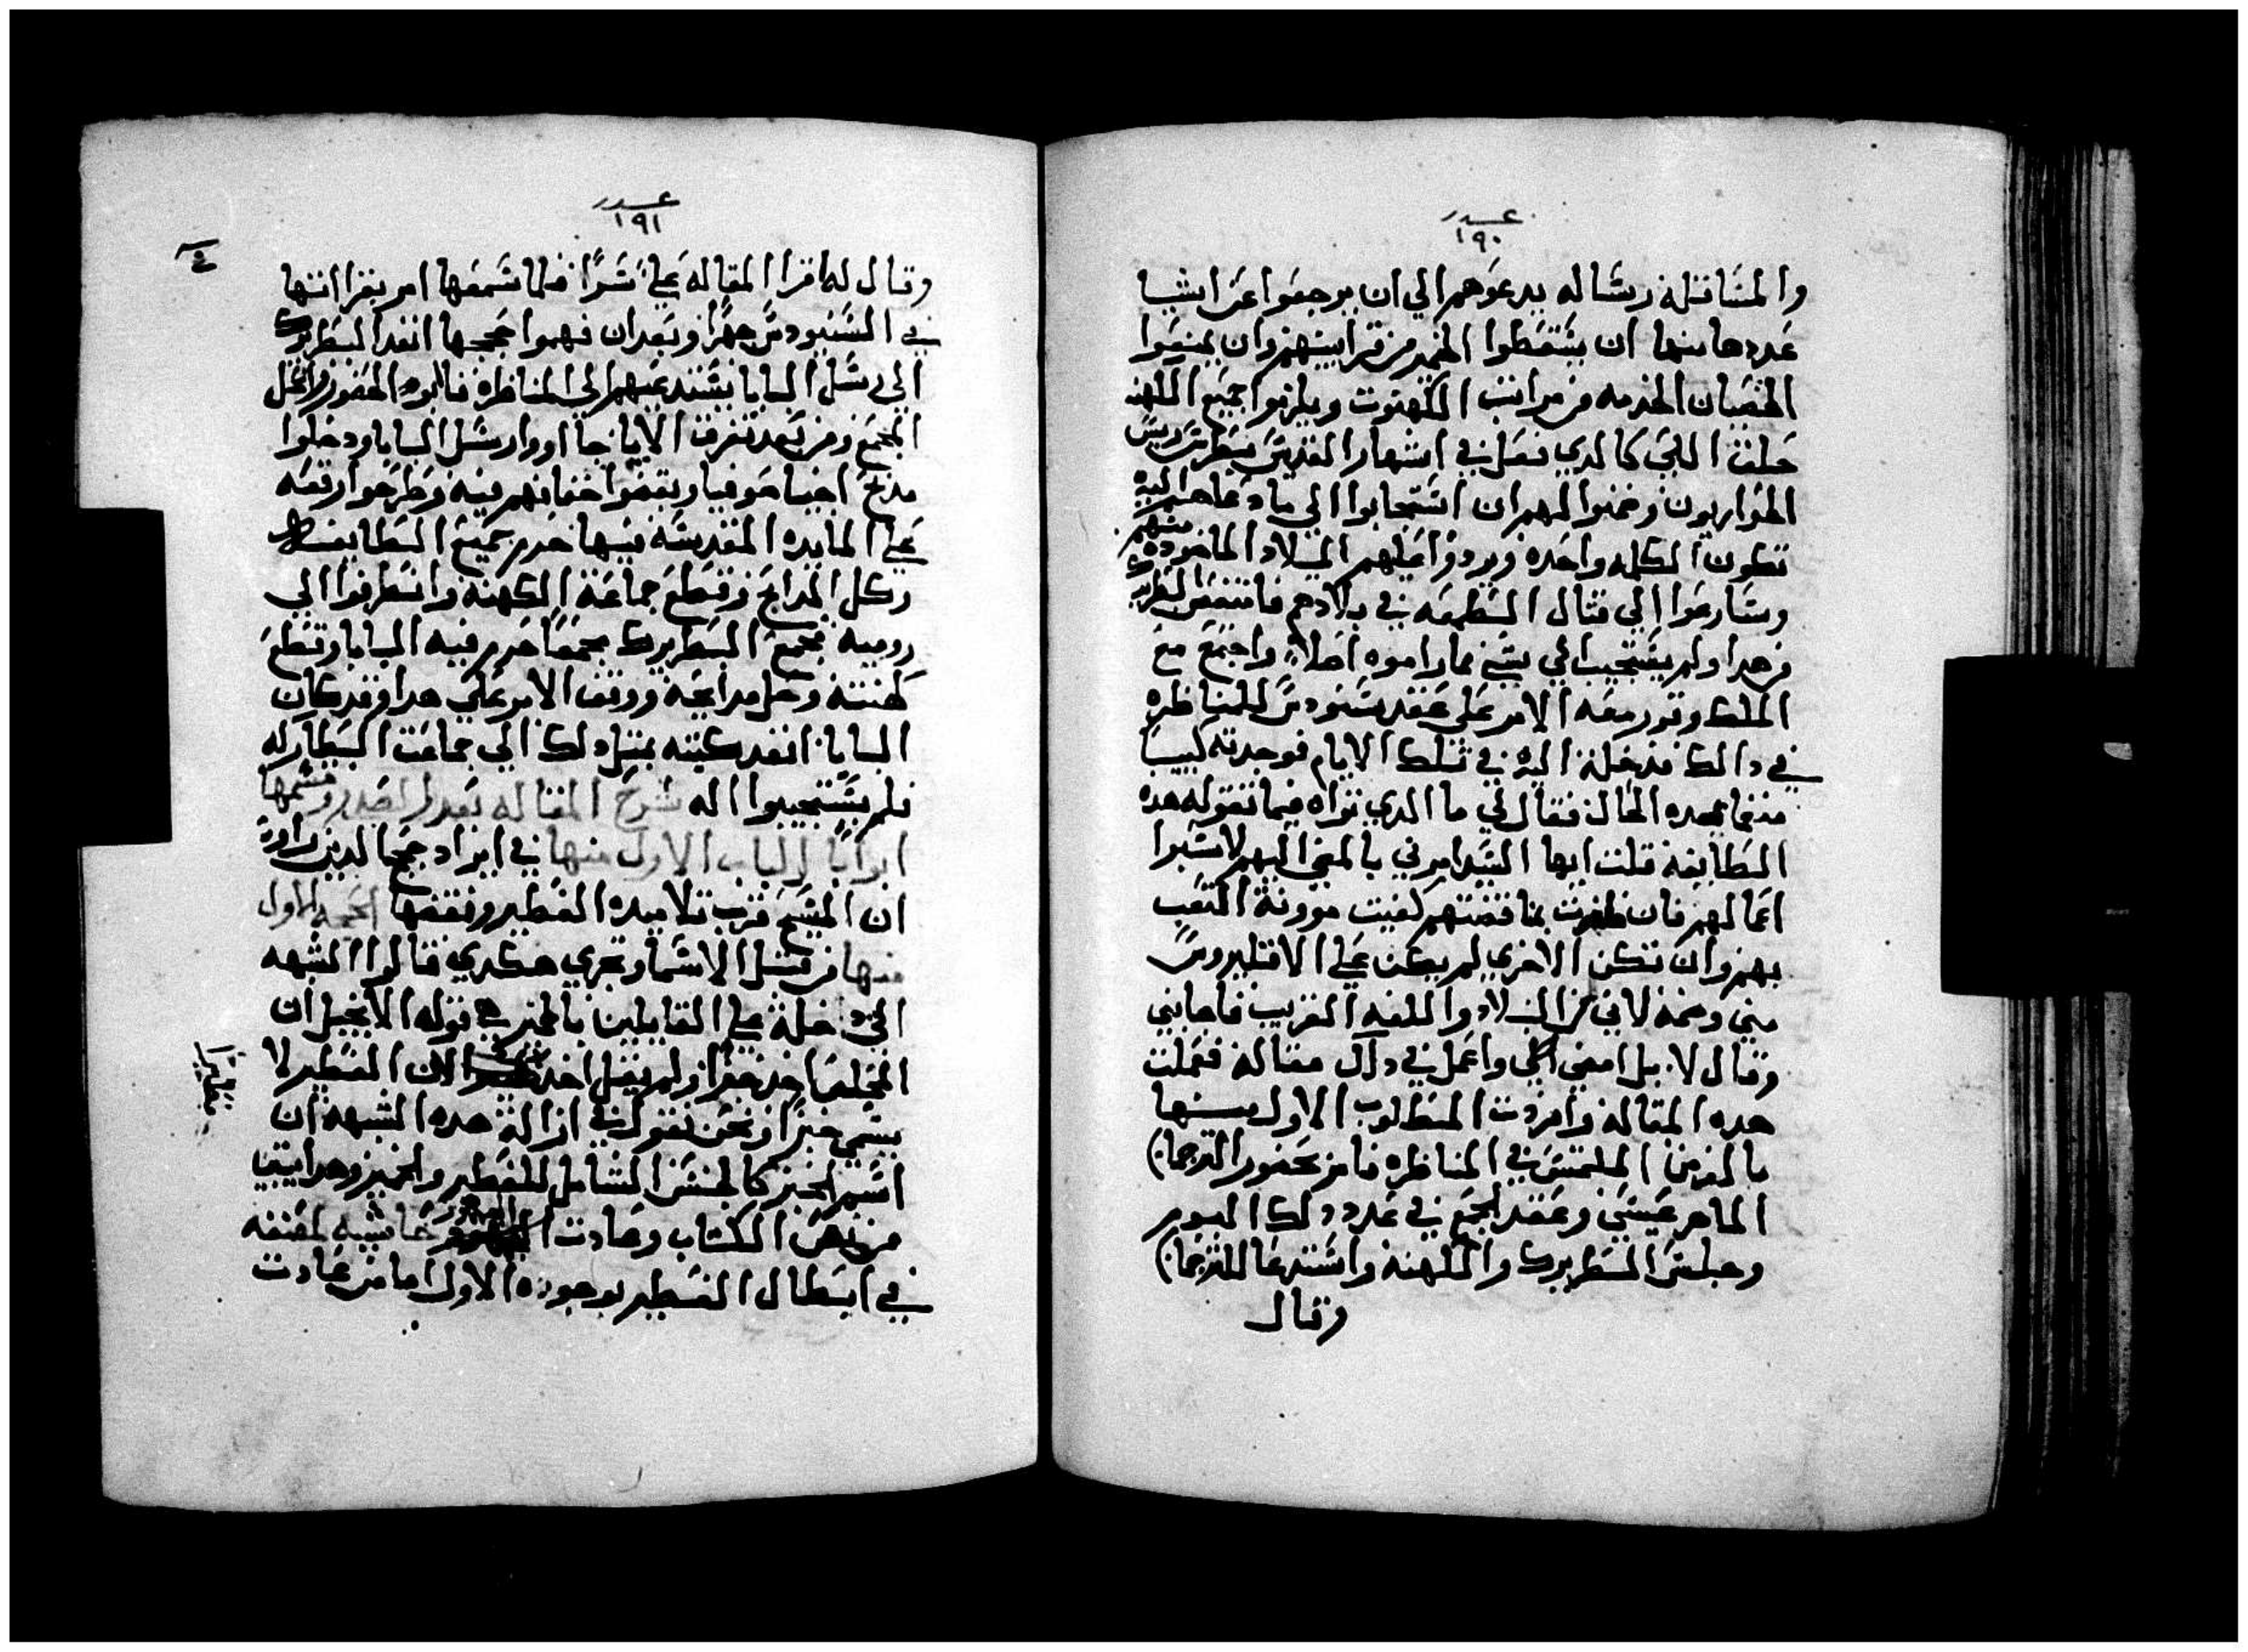 عدد
١٩٠
والمساتله رساله يدعوهم الي ان يرجعوا عن اشيا
عددها منها ان يسقطوا الخمير من قرابينهم وان يمنعوا
الخصيان الخدمه من مراتب الكهنوت ويلزموا جميع الكهنه
حلق اللحي كالدي فعل في اشهار القديس بطرس رييس
الحواريون وضمنوا لهم ان استجابوا الي ما دعاهم اليه
تكون الكلمه واحده ويردوا عليهم البلاد الماخوده منهم
وسارعوا الي قتال القطيعه في بلادهم فامتعض البطريرك
من هدا ولم يستجيب الي شي مما راموه اصلاً واجتمع مع
الملك وقرر معه الامر علي عقد سنودس للمناظره
في دالك فدخلت اليه في تلك الايام فوجدته كييبا
مدنفا بهده الحال فقال لي ما الدي تراه فيما تقوله هده
الطايفه قلت ايها السيد امرني بالمضي اليهم لاسبر
اعمالهم فان ظفرت بمناقضتهم كفيت موونة التعب
بهم وان تكن الاخري لم يكن علي الاقليروس
مني وصمه لاني من البلاد واللغه الغريب فاجابني
وقال لا بل امضي اليّ واعمل في دلك مقاله فعملت
هده المقاله وافردت المطلوب الاول منها
بالغرض الملتمس في المناظره فامر بحضور الترجمان
الماهر عيسي وعقد المجمع في غد دلك اليوم
وجلس البطريرك والكهنه واستدعا الترجمان
وقال
عدد
١٩١
وقال له اقرا المقاله علي سراً فلما سمعها امر بقرااتها
في السنودس جهراً وبعد ان فهموا حججها انفد البطريرك
الي رسل البابا يستدعيهم الي المناظره فابوا الحضور وانحل
المجمع ومن بعد تفرق الابا جااوا رسل البابا ودخلوا
مدبح اجيا صوفيا ونفضوا خفافهم فيه وطرحوا رقعه
علي المايده المقدسه فيها حرم جميع البطايركه
وكل المدابح وقطع جماعة الكهنه وانصرفوا الي
روميه فجمع البطريرك مجمعاً حرم فيه البابا وقطع
كهنته وحل مدابحه ووقف الامر علي هدا وقد كان
البابا انفد كتبه بمثل دلك الي جماعت البطاركه
فلم يستجيبوا له شرح المقاله بعد صدر وقسمها
ابواباً الباب الاول منها في ايراد حجج الدين راوا
ان المسيح قرب تلاميده الفطير ونقضها الحجه الاول
منها من قبل الاسما وتجري هكدي قالوا الشبهه
التي دخلة علي القايلين بالخمير هي قوله الانجيل ان
المخلص اخد خبزاً ولم يقل اخد فطيراً لان الفطير لا
يسمي خبزاً ونحن نقول في ازالة هده الشبهه ان
اسم الخبز كالجنس الشامل للفطير والخمير وهدا يتبين
من نص الكتاب وعادت حاشيه لمصنفه
في ابطال الفطير بوجوده الاول اما من عادت